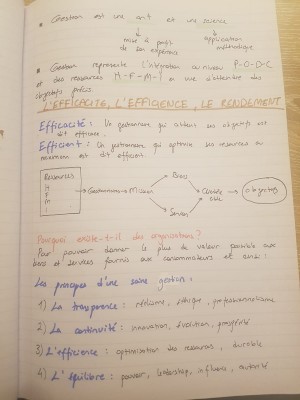 • Gestion est une art et une science
mise à profit application
de son expérience méthodique
• Gestion représente l'intération au niveau P-O-D-C
et des ressources H-F-M-I en vue d'atteindre des
objectifs précis
L'EFFICACITÉ, L'EFFICIENCE, LE RENDEMENT
Efficacité: Un gestionnaire qui obtient ses objectifs est
dit efficace.
Efficient: Un gestionnaire qui optimise les ressources au
maximum est dit efficient
Ressources
H
F
M
I
Gestionnaire → Mission
Biens
Services
Clientèle
objectifs
Pourquoi existe-t-il des organisations?
Par pouvoir donner le plus de valeur possible aux
biens et services fournis aux consommateurs et ainsi:
Les principes d'une saine gestion:
1) La transparence: réalisme, éthique, professionnalisme
2) La continuité: innovation, évolution, prospérité
3) L'efficience: optimisation des ressources, durable
4) L'équilibre: pouvoir, leadership, influence, autorité